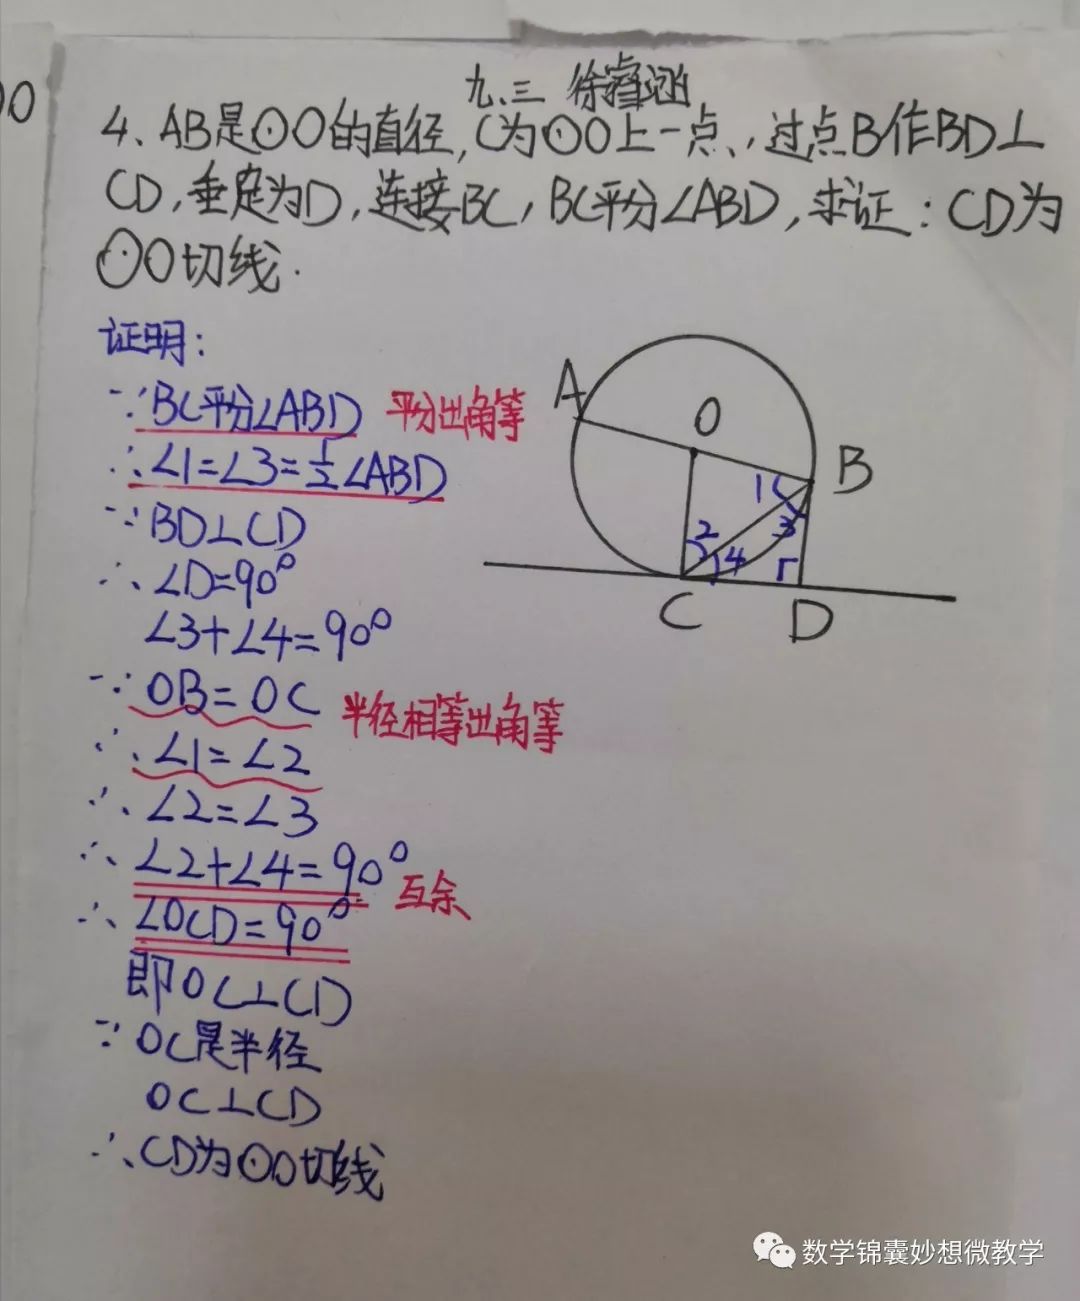 00
九.三 徐睿涵
4、AB是⊙O的直径,C为⊙O上一点,过点B作BD⊥
CD,垂足为D,连接BC,BC平分∠ABD,求证:CD为
⊙O切线.
证明:
∵BC平分∠ABD 平分出角等
∴∠1=∠3=1/2∠ABD
∵BD⊥CD
∴∠D=90°
∠3+∠4=90°
∵OB=OC 半径相等出角等
∴∠1=∠2
∴∠2=∠3
∴∠2+∠4=90° 互余
∴∠OCD=90°
即OC⊥CD
∵OC是半径
OC⊥CD
∴CD为⊙O切线
A
O
B
1
2
3
4
C
D
数学锦囊妙想微教学